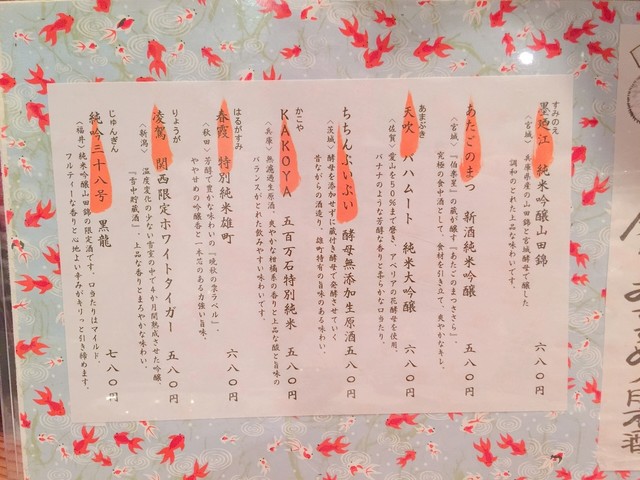 すみのえ
墨廼江 純米吟醸山田錦 六八〇円
〈宮城〉 兵庫県産の山田錦と宮城酵母で醸した
調和のとれた上品な味わいです。
あたごのまつ 新酒純米吟醸 五八〇円
〈宮城〉 『伯楽星』の蔵が醸す『あたごのまつささら』。
究極の食中酒として、食材を引き立て、爽やかなキレ。
あまぶき
天吹 バハムート 純米大吟醸 六八〇円
〈佐賀〉 愛山を40%まで磨き、アベリアの花酵母を使用。
バナナのような芳醇な香りと柔らかな口当たり。
ちちんぷいぷい 酵母無添加生原酒 五八〇円
〈茨城〉 酵母を添加せずに蔵付き酵母で発酵させていく
昔ながらの酒造り。雄町特有の旨味のある味わい。
かこや
KAKOYA 五百万石特別純米 五八〇円
〈兵庫〉 無濾過生原酒。爽やかな柑橘系の香りと上品な酸と旨味の
バランスがとれた飲みやすい味わいです。
はるがすみ
春霞 特別純米雄町 六八〇円
〈秋田〉 芳醇で豊かな味わいの『晩秋の栗ラベル』。
ややせめの吟醸香と一本芯のある力強い旨味。
りょうが
凌駕 関西限定ホワイトタイガー 五八〇円
〈新潟〉 温度変化の少ない雪室の中で6か月間熟成させた吟醸、
『雪中貯蔵酒』。上品な香りとまろやかな味わい。
じゅんぎん
純吟三十八号 黒龍 七八〇円
〈福井〉 純米吟醸山田錦の限定酒です。口当たりはマイルド。
フルーティーな香りと心地よい辛みがキリっと引き締めます。